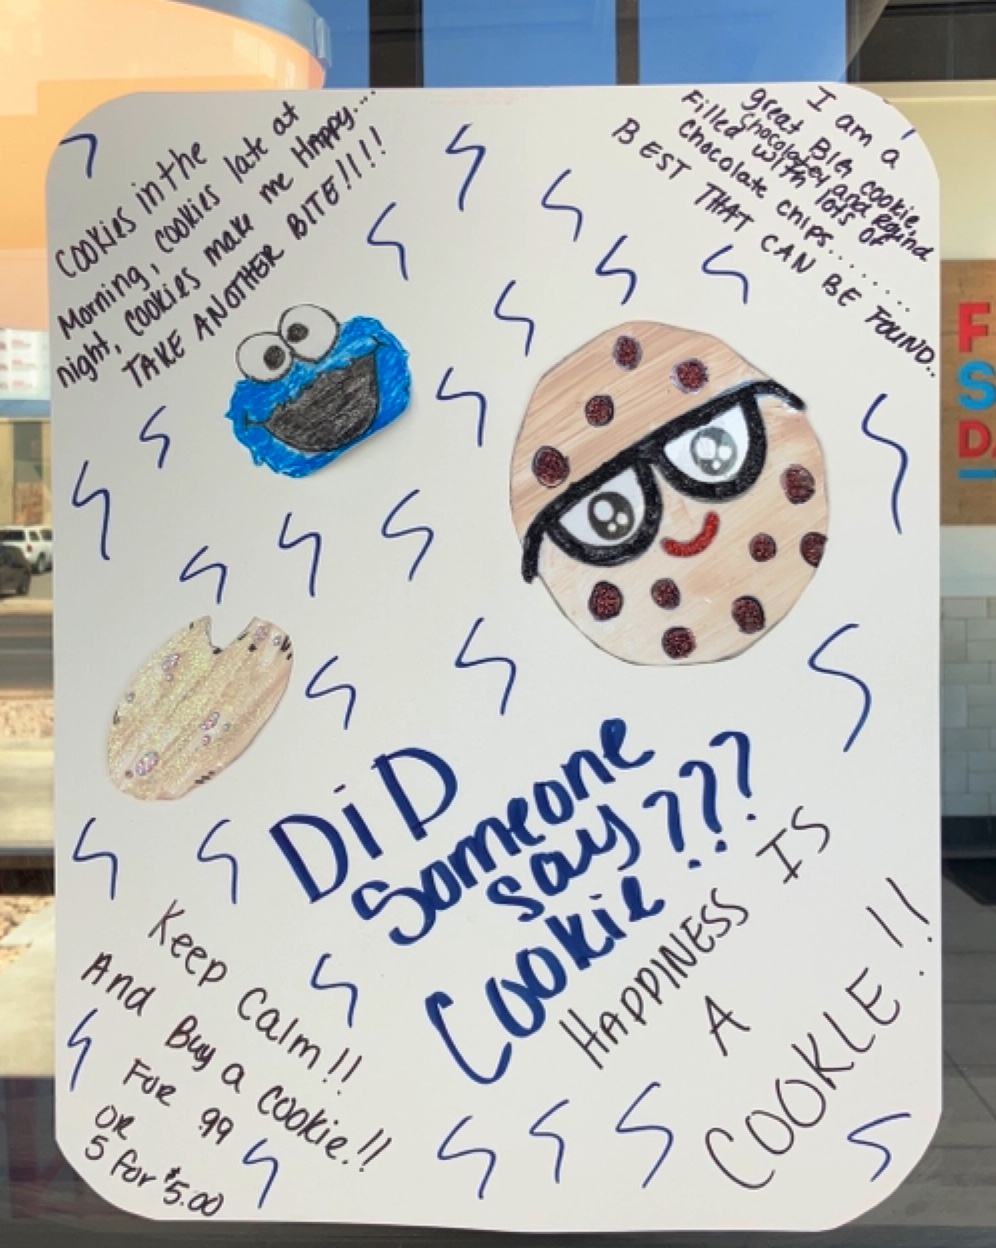 Cookies in the
Morning, cookies late at
night, cookies make me Happy....
TAKE ANOTHER BITE!!!!
I am a
great BIG cookie,
chocolatey and Round
Filled with lots of
chocolate chips..........
BEST THAT CAN BE FOUND..
DiD
Someone
say???
Cookie
HAPPINESS IS
A
COOKLE!!
Keep Calm!!
And Buy a cookie!!
FOR 99
OR
5 for $5.00
F
S
DA